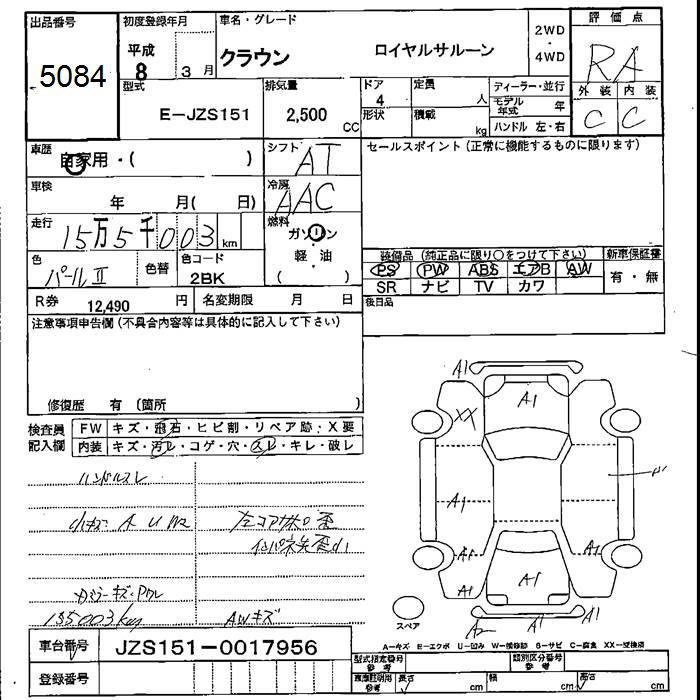 出品番号 初度登録年月 車名・グレード 2WD ・ 4WD 評価点
5084 平成 8 3月 クラウン ロイヤルサルーン RA
型式 排気量 ドア 4 定員 人 ディーラー・並行 外装 内装
E-JZS151 2,500 CC 形状 積載 kg モデル年式 年 C C
ハンドル 左・右
車歴 自家用・( ) シフト AT セールスポイント(正常に機能するものに限ります)
車検 年 月( 日) 冷房 AAC
走行 15万5千003km 燃料 ガソリン
軽・油
( )
装備品(純正品に限り○をつけて下さい) 新車保証書
色 パールII 色替 色コード 2BK PS PW ABS エアB AW 有・無
SR ナビ TV カワ
R券 12,490 円 名変期限 月 日 後日品
注意事項申告欄(不具合内容等は具体的に記入して下さい)
修復歴 有(箇所 )
検査員 記入欄 FW キズ・飛石・ヒビ割・リペア跡・X要
内装 キズ・汚レ・コゲ・穴・スレ・キレ・破レ
ハンドルスレ
小キズ A U W2
155003km AWキズ
A1 A1 XX A1 A1 A1 A1 A1 A2 A1 A1
スペア
A-キズ E-エクボ U-凹み W-補修跡 S-サビ C-腐食 XX-交換済
車台番号 JZS151-0017956
型式指定番号 参考 類別区分番号 参考
登録番号 長さ cm 幅 cm 高さ cm